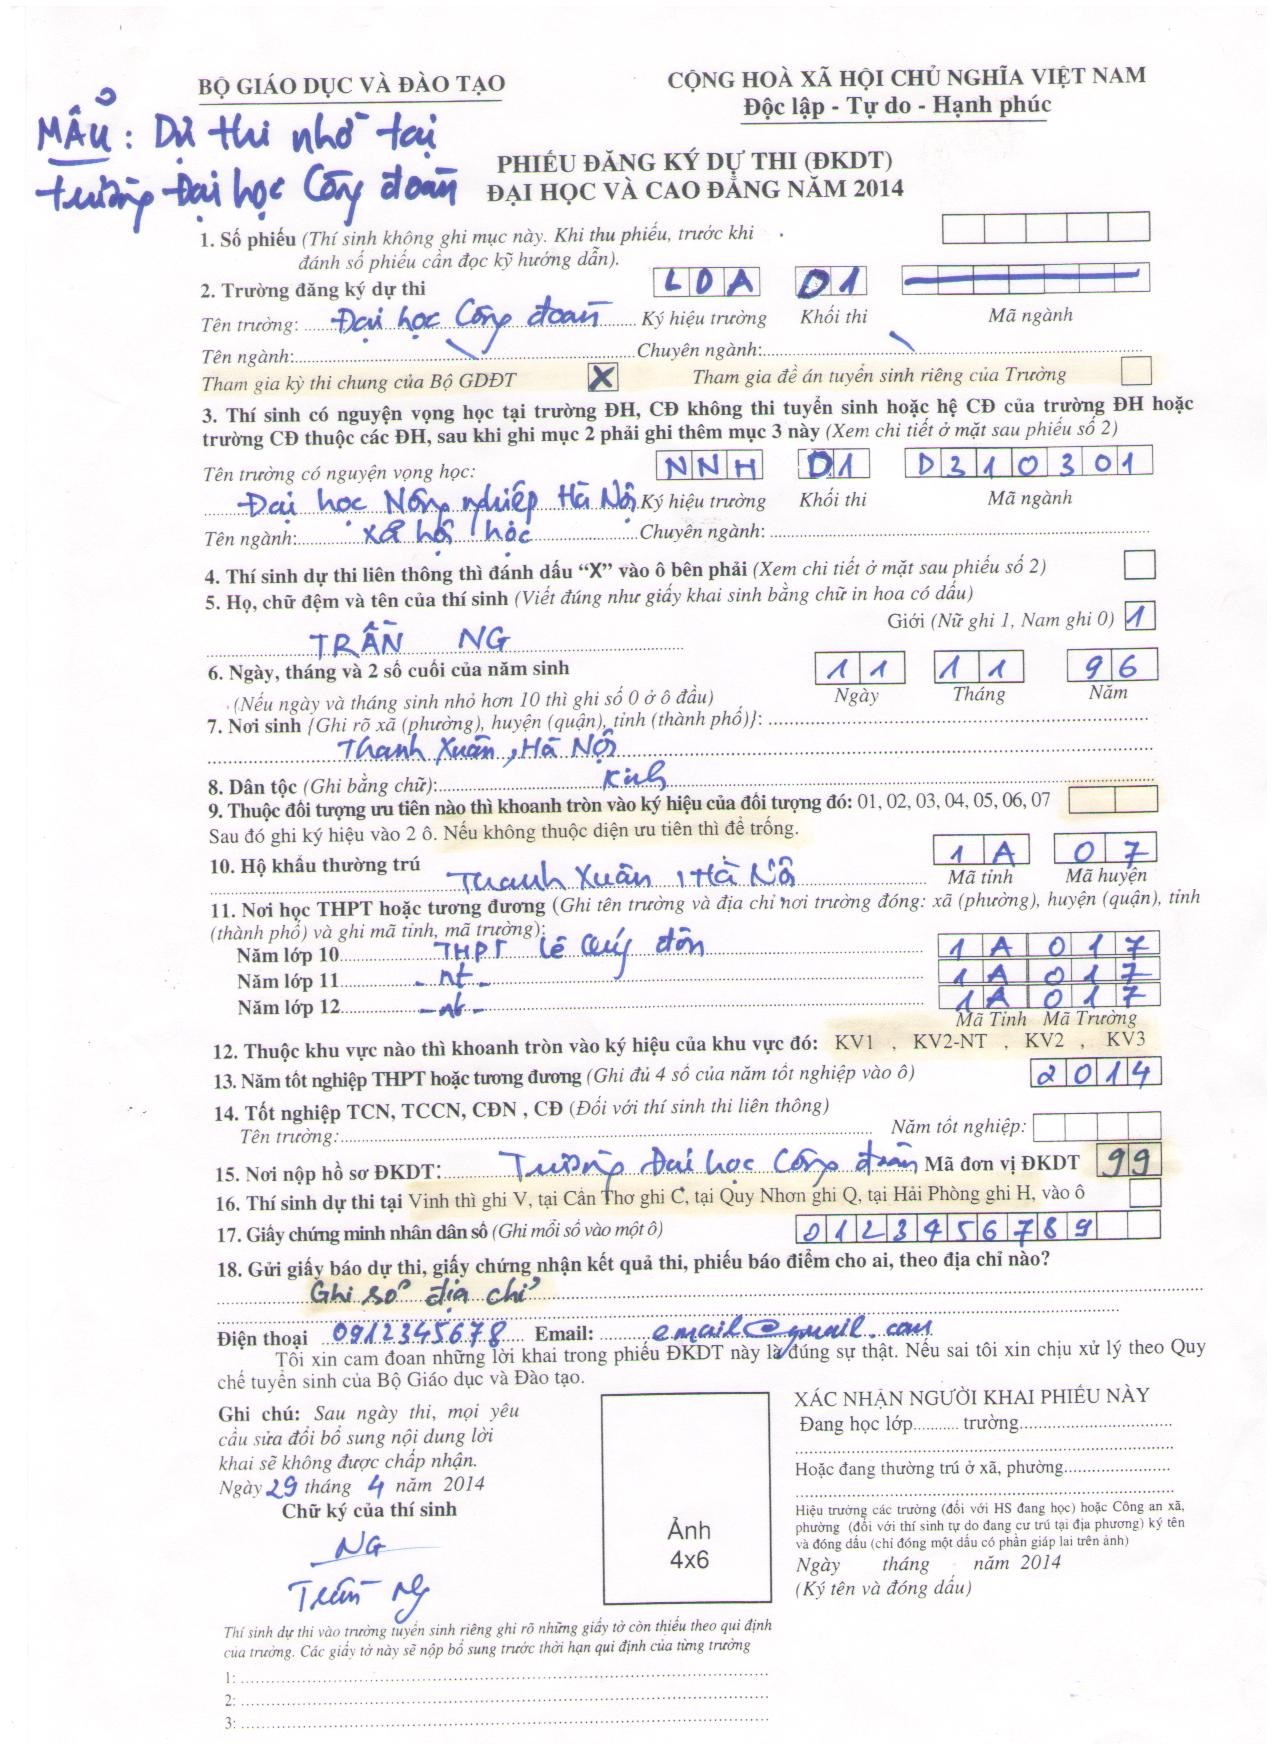 BỘ GIÁO DỤC VÀ ĐÀO TẠO
CỘNG HOÀ XÃ HỘI CHỦ NGHĨA VIỆT NAM
Độc lập - Tự do - Hạnh phúc
MẪU : Dự thi nhờ tại
trường Đại học Công đoàn
PHIẾU ĐĂNG KÝ DỰ THI (ĐKDT)
ĐẠI HỌC VÀ CAO ĐẲNG NĂM 2014
1. Số phiếu (Thí sinh không ghi mục này. Khi thu phiếu, trước khi
đánh số phiếu cần đọc kỹ hướng dẫn).
2. Trường đăng ký dự thi LDA D1
Tên trường: Đại học Công đoàn Ký hiệu trường Khối thi Mã ngành
Tên ngành: Chuyên ngành:
Tham gia kỳ thi chung của Bộ GDĐT X Tham gia đề án tuyển sinh riêng của Trường
3. Thí sinh có nguyện vọng học tại trường ĐH, CĐ không thi tuyển sinh hoặc hệ CĐ của trường ĐH hoặc
trường CĐ thuộc các ĐH, sau khi ghi mục 2 phải ghi thêm mục 3 này (Xem chi tiết ở mặt sau phiếu số 2)
Tên trường có nguyện vọng học: NNH D1 D310301
Đại học Nông nghiệp Hà Nội Ký hiệu trường Khối thi Mã ngành
Tên ngành: xã hội học Chuyên ngành:
4. Thí sinh dự thi liên thông thì đánh dấu “X” vào ô bên phải (Xem chi tiết ở mặt sau phiếu số 2)
5. Họ, chữ đệm và tên của thí sinh (Viết đúng như giấy khai sinh bằng chữ in hoa có dấu)
Giới (Nữ ghi 1, Nam ghi 0) 1
TRẦN NG
6. Ngày, tháng và 2 số cuối của năm sinh 11 11 96
(Nếu ngày và tháng sinh nhỏ hơn 10 thì ghi số 0 ở ô đầu) Ngày Tháng Năm
7. Nơi sinh {Ghi rõ xã (phường), huyện (quận), tỉnh (thành phố)}:
Thanh Xuân, Hà Nội
8. Dân tộc (Ghi bằng chữ): Kinh
9. Thuộc đối tượng ưu tiên nào thì khoanh tròn vào ký hiệu của đối tượng đó: 01, 02, 03, 04, 05, 06, 07
Sau đó ghi ký hiệu vào 2 ô. Nếu không thuộc diện ưu tiên thì để trống.
10. Hộ khẩu thường trú 1A 07
Thanh Xuân, Hà Nội Mã tỉnh Mã huyện
11. Nơi học THPT hoặc tương đương (Ghi tên trường và địa chỉ nơi trường đóng: xã (phường), huyện (quận), tỉnh
(thành phố) và ghi mã tỉnh, mã trường):
Năm lớp 10 THPT Lê Quý Đôn 1A 017
Năm lớp 11 - nt - 1A 017
Năm lớp 12 - nt - 1A 017
Mã Tỉnh Mã Trường
12. Thuộc khu vực nào thì khoanh tròn vào ký hiệu của khu vực đó: KV1 , KV2-NT , KV2 , KV3
13. Năm tốt nghiệp THPT hoặc tương đương (Ghi đủ 4 số của năm tốt nghiệp vào ô) 2014
14. Tốt nghiệp TCN, TCCN, CĐN , CĐ (Đối với thí sinh thi liên thông)
Tên trường: Năm tốt nghiệp:
15. Nơi nộp hồ sơ ĐKDT: Trường Đại học Công đoàn Mã đơn vị ĐKDT 99
16. Thí sinh dự thi tại Vinh thì ghi V, tại Cần Thơ ghi C, tại Quy Nhơn ghi Q, tại Hải Phòng ghi H, vào ô
17. Giấy chứng minh nhân dân số (Ghi mỗi số vào một ô) 0123456789
18. Gửi giấy báo dự thi, giấy chứng nhận kết quả thi, phiếu báo điểm cho ai, theo địa chỉ nào?
Ghi số địa chỉ
Điện thoại 0912345678 Email: email@gmail.com
Tôi xin cam đoan những lời khai trong phiếu ĐKDT này là đúng sự thật. Nếu sai tôi xin chịu xử lý theo Quy
chế tuyển sinh của Bộ Giáo dục và Đào tạo.
Ghi chú: Sau ngày thi, mọi yêu
cầu sửa đổi bổ sung nội dung lời
khai sẽ không được chấp nhận.
Ngày 29 tháng 4 năm 2014
Chữ ký của thí sinh
NG
Trần Ng
Ảnh
4x6
XÁC NHẬN NGƯỜI KHAI PHIẾU NÀY
Đang học lớp........... trường
Hoặc đang thường trú ở xã, phường
Hiệu trưởng các trường (đối với HS đang học) hoặc Công an xã,
phường (đối với thí sinh tự do đang cư trú tại địa phương) ký tên
và đóng dấu (chỉ đóng một dấu có phần giáp lai trên ảnh)
Ngày tháng năm 2014
(Ký tên và đóng dấu)
Thí sinh dự thi vào trường tuyển sinh riêng ghi rõ những giấy tờ còn thiếu theo qui định
của trường. Các giấy tờ này sẽ nộp bổ sung trước thời hạn qui định của từng trường
1:
2:
3: